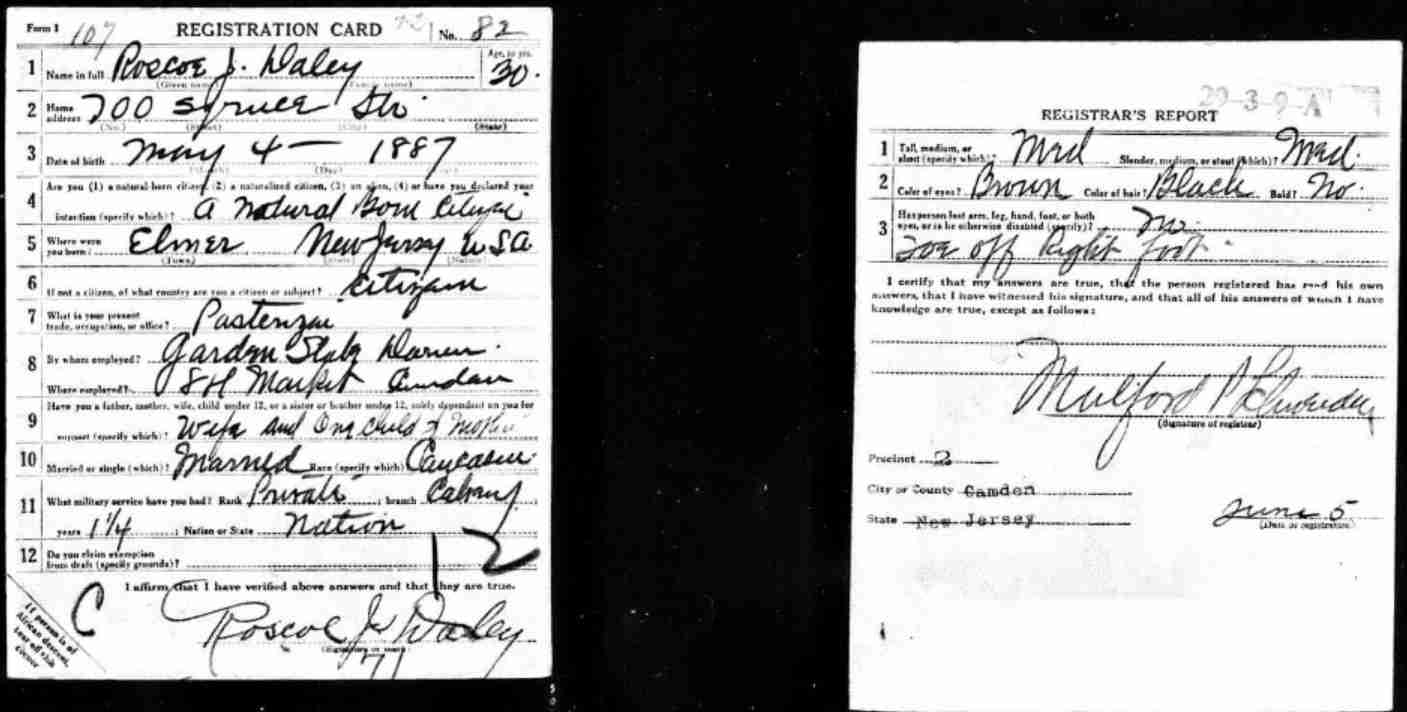 Form 1 107 REGISTRATION CARD No. 82
1 Name in full Roscoe J. Daley Age, in yrs. 30.
(Given name) (Family name)
2 Home address 700 Spruce Str.
(No.) (Street) (City) (State)
3 Date of birth May 4 — 1887
(Month) (Day)
4 Are you (1) a natural-born citizen, (2) a naturalized citizen, (3) an alien, (4) or have you declared your
intention (specify which)? A Natural Born Citizen
5 Where were you born? Elmer New Jersey U S A
(Town) (State) (Nation)
6 If not a citizen, of what country are you a citizen or subject? Citizen
7 What is your present trade, occupation, or office?
8 By whom employed? Garden State
Where employed? Market Camden
9 Have you a father, mother, wife, child under 12, or a sister or brother under 12, solely dependent on you for
support (specify which)? Wife and One Child & Mother
10 Married or single (which)? Married Race (specify which)? Caucasian
11 What military service have you had? Rank Private ; branch Calvary ;
years 1 1/4 ; Nation or State Nation
12 Do you claim exemption from draft (specify grounds)?
12
I affirm that I have verified above answers and that they are true.
C
Roscoe J. Daley
(Signature or mark)
71
If person is of African descent, tear off this corner
29-3-9 A
REGISTRAR'S REPORT
1 Tall, medium, or short (specify which)? Med Slender, medium, or stout (which)? Med.
2 Color of eyes? Brown Color of hair? Black Bald? No.
3 Has person lost arm, leg, hand, foot, or both eyes, or is he otherwise disabled (specify)? No
Toe off Right foot
I certify that my answers are true, that the person registered has read his own
answers, that I have witnessed his signature, and that all of his answers of which I have
knowledge are true, except as follows:
Mulford
(Signature of registrar)
Precinct 2
City or County Camden
State New Jersey
June 5
(Date of registration)